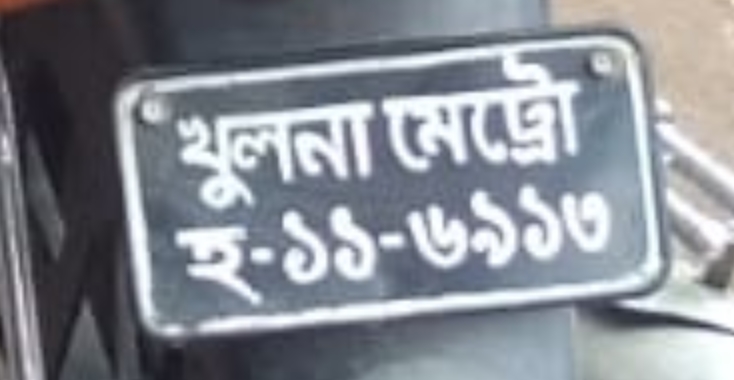 খুলনা মেট্রো
হ-১১-৬৯১৩